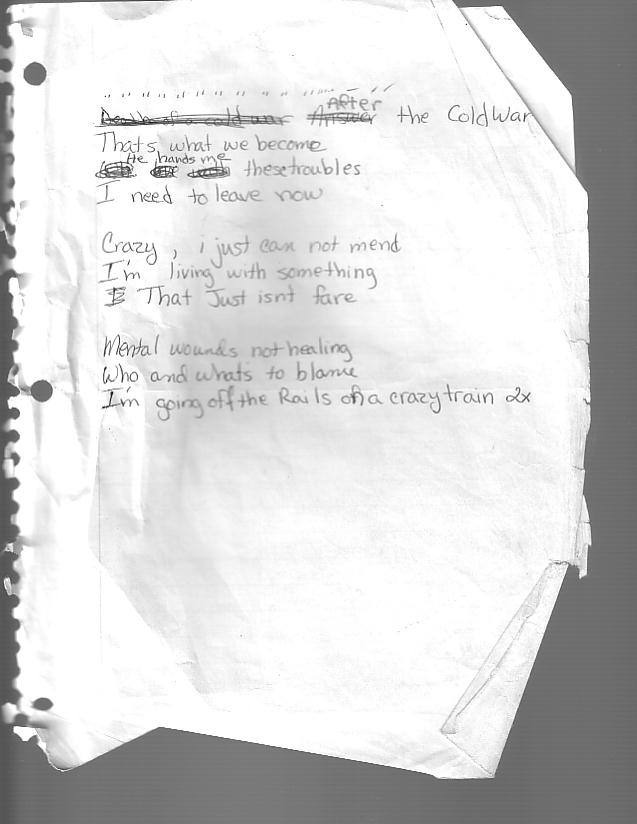 " " " " " " " " " " " " "
Death of a cold war Answer After the Cold War
Thats what we become
He hands me these troubles
I need to leave now
Crazy, i just can not mend
I'm living with something
That Just isnt fare
Mental wounds not healing
Who and whats to blame
I'm going off the Rails on a crazy train 2x